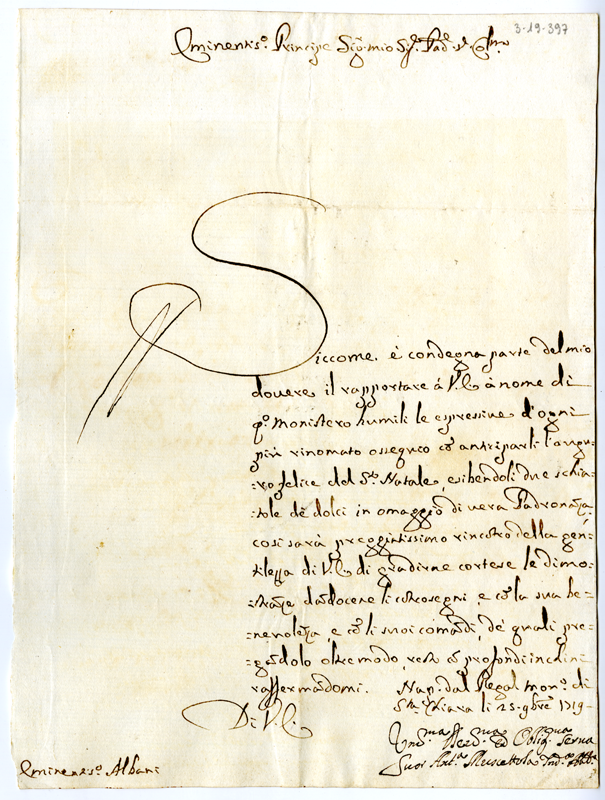 3-19-397
Eminentis.o Principe Sig.r mio Sig.r Pad.e Col.mo
Siccome è condegna parte del mio
douere il rapportare á V.E. à nome di
q.o Monistero humili le espressiue d'ogni
più rinomato ossequio cõ anticiparli l'augu-
-ro felice del S.to Natale, esibendoli due schia-
-tole de dolci in omaggio di uera Padronãza
cosi sarà preggiatissimo rincõtro della gen-
tilezza di V.E. di gradirne cortese le dimo-
-strãze dãdocene li cõtrosegni, e cõ la sua be-
-neuolẽza, e cõ li suoi comãdi, de quali pre-
-gãdolo oltremodo, resto cõ profondi inchini
raffermãdomi. Nap. dal Regal mon.o di
S.ta Chiara li 25. 9bre 1719-
Di V.E.
Um.ma Deu.ma ed Oblig.ma Serua
Suor Ant.a Muscettola
Eminentis.o Albani